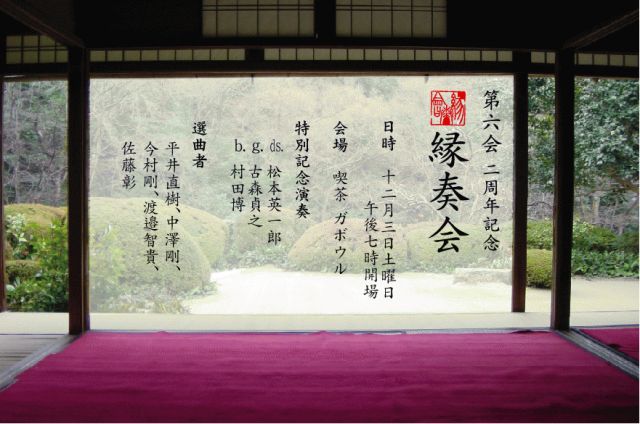 第六会 二周年記念
縁奏会
日時 十二月三日土曜日
午後七時開場
会場 喫茶 ガボウル
特別記念演奏
ds. 松本英一郎
g. 古森貞之
b. 村田博
選曲者
平井直樹、中澤剛、
今村剛、渡邉智貴、
佐藤彰